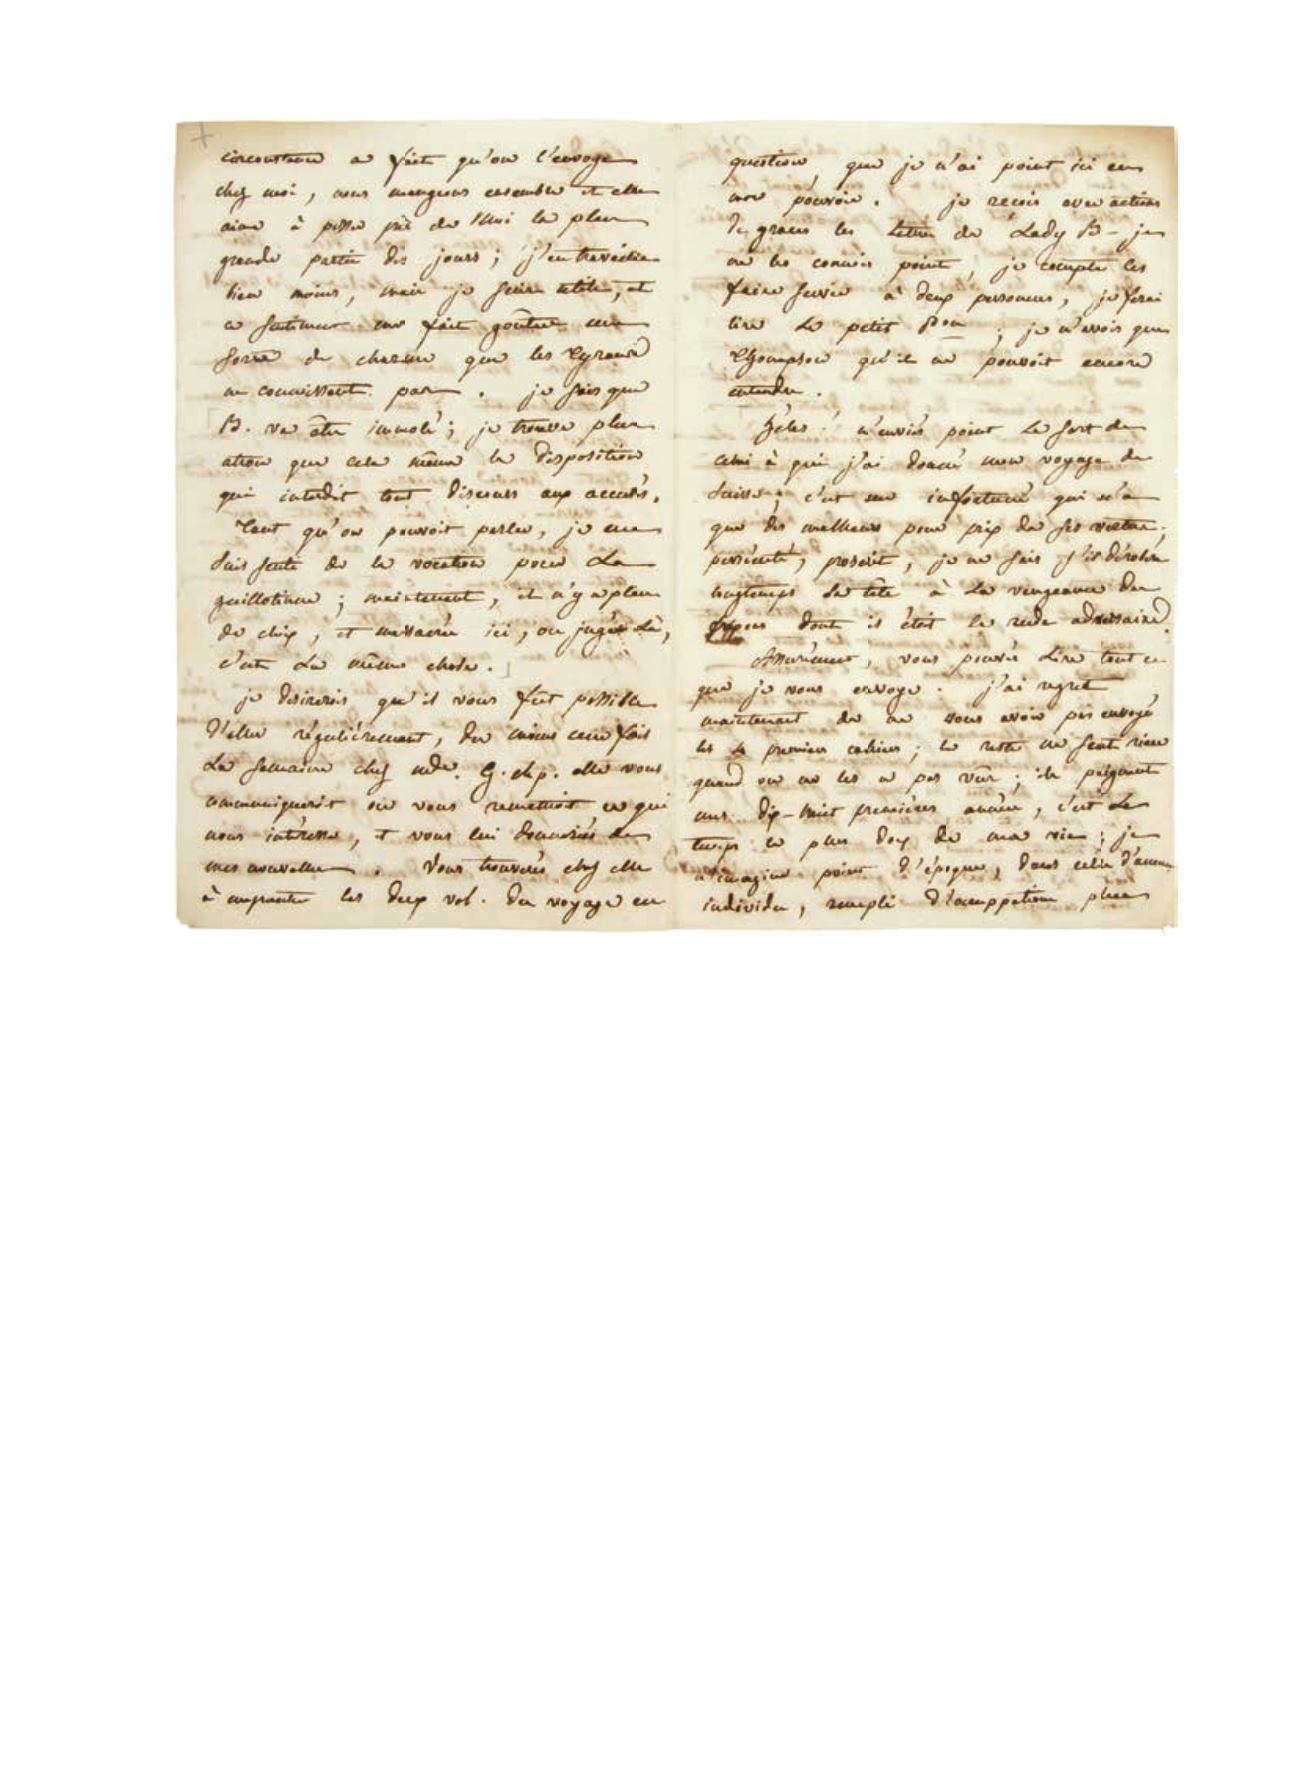 circonstance a fait qu'on l'envoye
chez moi, nous mangeons ensemble et elle
aime à passer près de moi la plus
grande partie des jours; j'en travaille
bien moins, mais je suis utile, et
ce sentiment me fait goûter une
sorte de charme que les Tyrans
ne connoissent pas. je sais que
B. va être immolé; je trouve plus
atroce que cela même la disposition
qui interdit tout discours aux accusés.
Tant qu'on pouvoit parler, je me
suis senti de la vocation pour la
guillotine; maintenant, il n'y a plus
de choix, et massacrée ici, ou jugée là,
c'est la même chose.
je désirerois qu'il vous fût possible
d'aller régulièrement, du moins une fois
la semaine chez mde. G. chp. elle vous
communiqueroit ou vous remettroit ce qui
nous intéresse, et vous lui donneriés de
mes nouvelles. Vous trouverés chez elle
à emprunter les deux vol. du voyage en
question, que je n'ai point ici en
mon pouvoir. je reçois avec actions
de graces les lettres de Lady B- je
ne les connois point, je compte les
faire servir à deux personnes, je ferai
lire le petit Bon ; je n'avois que
Thompson qu'il ne pouvoit encore
entendre.
hélas! n'enviés point le sort de
celui à qui j'ai donné mon voyage de
Suisse; c'est un infortuné qui n'a
que des malheurs pour prix de ses vertus;
persécuté, proscrit, je ne sais s'il dérobera
longtemps sa tête à la vengeance des
fripons dont il étoit le rude adversaire.
Assurément, vous pouvés lire tout ce
que je vous envoye. j'ai regret
maintenant de ne vous avoir pas envoyé
les 4 premiers cahiers; le reste ne sent rien
quand on ne les a pas vûs; ils peignent
mes dix-huit premières années, c'est le
temps le plus doux de ma vie; je
n'imagine point d'époque, dans celle d'aucun
individu, remplie d'occupations plus